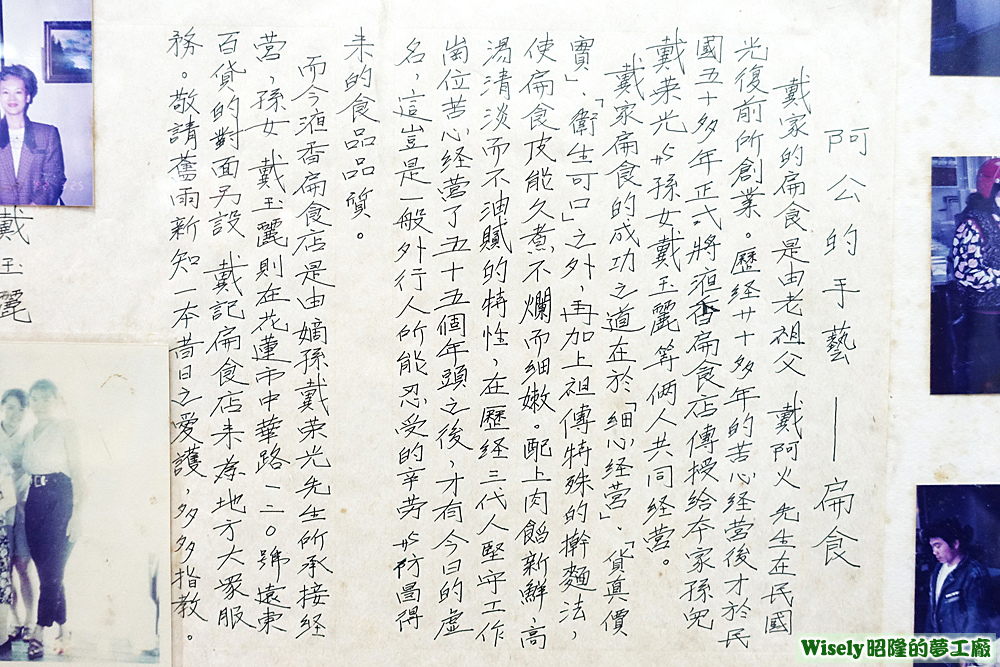 阿公的手藝——扁食
戴家的扁食是由老祖父 戴阿火 先生在民國
光復前所創業。歷経廿十多年的苦心経營後才於民
國五十多年正式將液香扁食店傳授給本家孫兒
戴荣光與孫女戴玉麗等俩人共同経營。
戴家扁食的成功之道在於「細心経營」、「貨真價
實」、「衛生可口」之外,再加上祖傳特殊的擀麵法,
使扁食皮能久煮不爛而細嫩。配上肉餡新鮮,高
湯清淡而不油膩的特性,在歷経三代人堅守工作
崗位苦心経營了五十五個年頭之後,才有今日的虛
名,這豈是一般外行人所能忍受的辛劳與所啚得
来的食品品質。
而今液香扁食店是由嫡孫戴荣光先生所承接経
營,孫女 戴玉麗則在花蓮市中華路一二〇號遠東
百貨的對面另設 戴記扁食店来為地方大眾服
務。敬請舊雨新知一本昔日之愛護,多多指教。
戴玉麗
Wisely昭隆的夢工廠